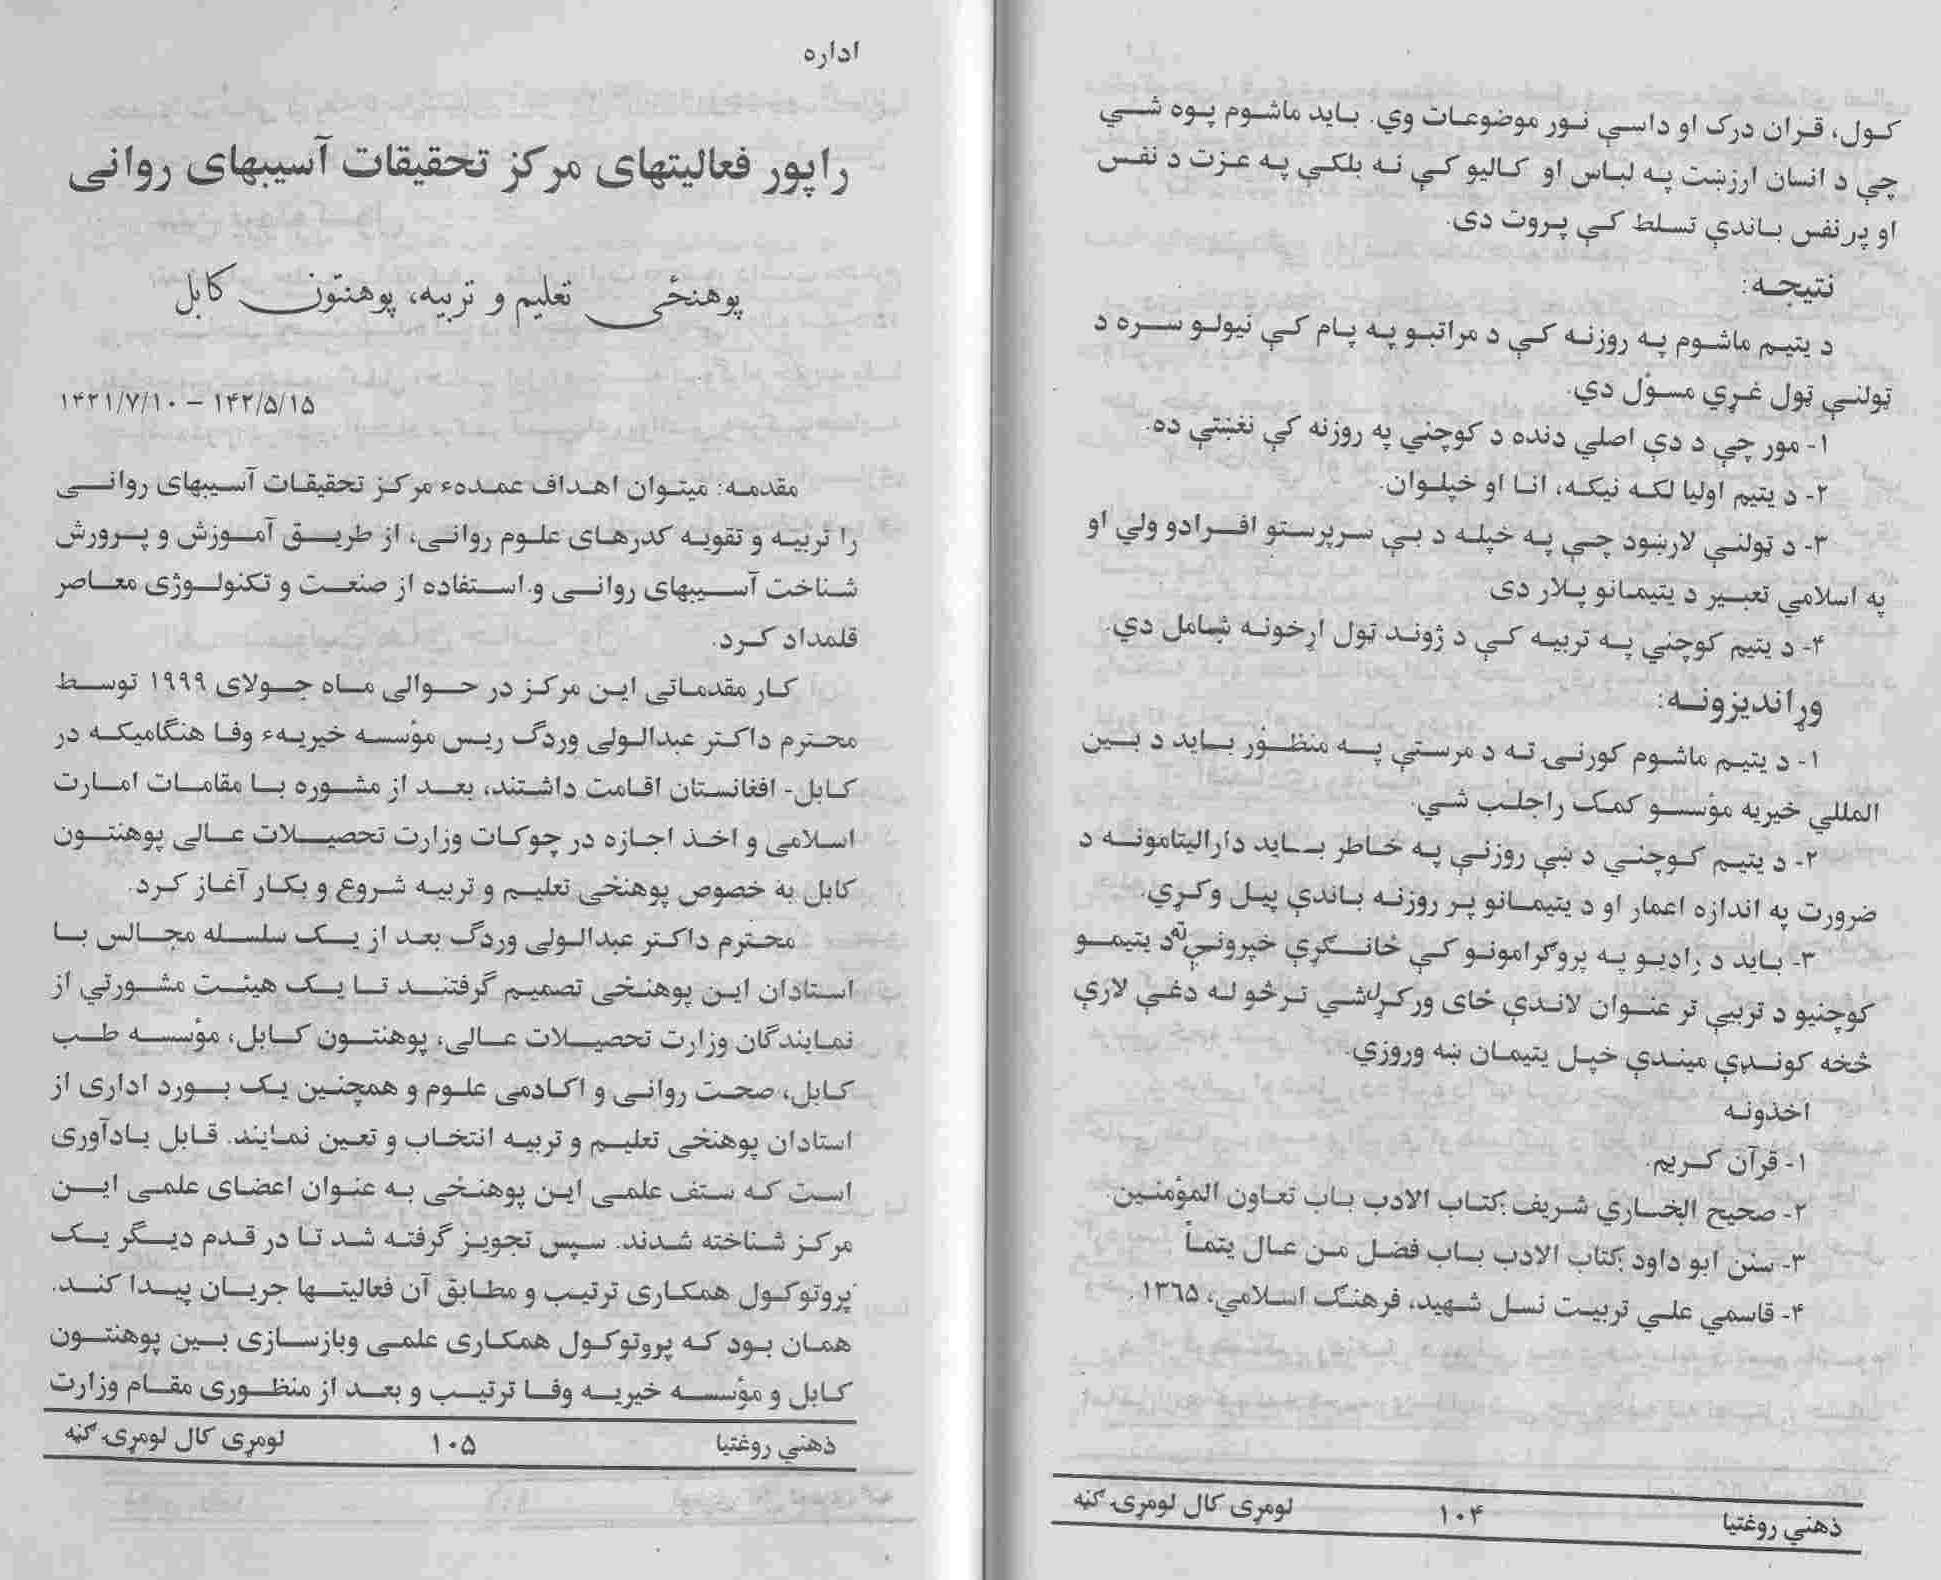 کول، قران درک او داسې نور موضوعات وي. باید ماشوم پوه شي
چې د انسان ارزښت په لباس او کالیو کې نه بلکې په عزت د نفس
او پر نفس باندې تسلط کې پروت دی.
نتیجه:
د یتیم ماشوم په روزنه کې د مراتبو په پام کې نیولو سره د
ټولنې ټول غړي مسؤل دي.
۱- مور چې د دې اصلي دنده د کوچني په روزنه کې نغښتې ده.
۲- د یتیم اولیا لکه نیکه، انا او خپلوان.
۳- د ټولنې لارښود چې په خپله د بې سرپرستو افرادو ولي او
په اسلامي تعبیر د یتیمانو پلار دی
۴- د یتیم کوچني په تربیه کې د ژوند ټول اړخونه شامل دي.
وړاندیزونه:
۱- د یتیم ماشوم کورنۍ ته د مرستې په منظور باید د بین
المللي خیریه مؤسسو کمک راجلب شي.
۲- د یتیم کوچني د ښې روزنې په خاطر باید دارالیتامونه د
ضرورت په اندازه اعمار او د یتیمانو پر روزنه باندې پیل وکړي.
۳- باید د رادیو په پروګرامونو کې ځانګړې خپرونې ته د یتیمو
کوچنیو د تربیې تر عنوان لاندې ځای ورکړل شي ترڅو له دغې لارې
څخه کونډې میندې خپل یتیمان ښه وروزي.
اخذونه
۱- قرآن کریم.
۲- صحیح البخاري شریف کتاب الادب باب تعاون المؤمنین.
۳- سنن ابو داود کتاب الادب باب فضل من عال یتماً.
۴- قاسمي علي تربیت نسل شهید، فرهنگ اسلامي، ۱۳۶۵.
ذهني روغتیا ۱۰۴ لومړی کال لومړۍ ګڼه
اداره
راپور فعالیتهای مرکز تحقیقات آسیبهای روانی
پوهنځی تعلیم و تربیه، پوهنتون کابل
۱۴۲/۵/۱۵ – ۱۴۲۱/۷/۱۰
مقدمه: میتوان اهداف عمدهء مرکز تحقیقات آسیبهای روانی
را تربیه و تقویه کدرهای علوم روانی، از طریق آموزش و پرورش
شناخت آسیبهای روانی و استفاده از صنعت و تکنولوژی معاصر
قلمداد کرد.
کار مقدماتی این مرکز در حوالی ماه جولای ۱۹۹۹ توسط
محترم داکتر عبدالولی وردگ ریس مؤسسه خیریهء وفا هنگامیکه در
کابل- افغانستان اقامت داشتند، بعد از مشوره با مقامات امارت
اسلامی و اخذ اجازه در چوکات وزارت تحصیلات عالی پوهنتون
کابل به خصوص پوهنځی تعلیم و تربیه شروع و بکار آغاز کرد.
محترم داکتر عبدالولی وردگ بعد از یک سلسله مجالس با
استادان این پوهنځی تصمیم گرفتند تا یک هیئت مشورتي از
نمایندگان وزارت تحصیلات عالی، پوهنتون کابل، مؤسسه طب
کابل، صحت روانی و اکادمی علوم و همچنین یک بورد اداری از
استادان پوهنځی تعلیم و تربیه انتخاب و تعین نمایند. قابل یادآوری
است که ستف علمی این پوهنځی به عنوان اعضای علمی این
مرکز شناخته شدند. سپس تجویز گرفته شد تا در قدم دیگر یک
پروتوکول همکاری ترتیب و مطابق آن فعالیتها جریان پیدا کند.
همان بود که پروتوکول همکاری علمی وبازسازی بین پوهنتون
کابل و مؤسسه خیریه وفا ترتیب و بعد از منظوری مقام وزارت
ذهني روغتیا ۱۰۵ لومړی کال لومړۍ ګڼه